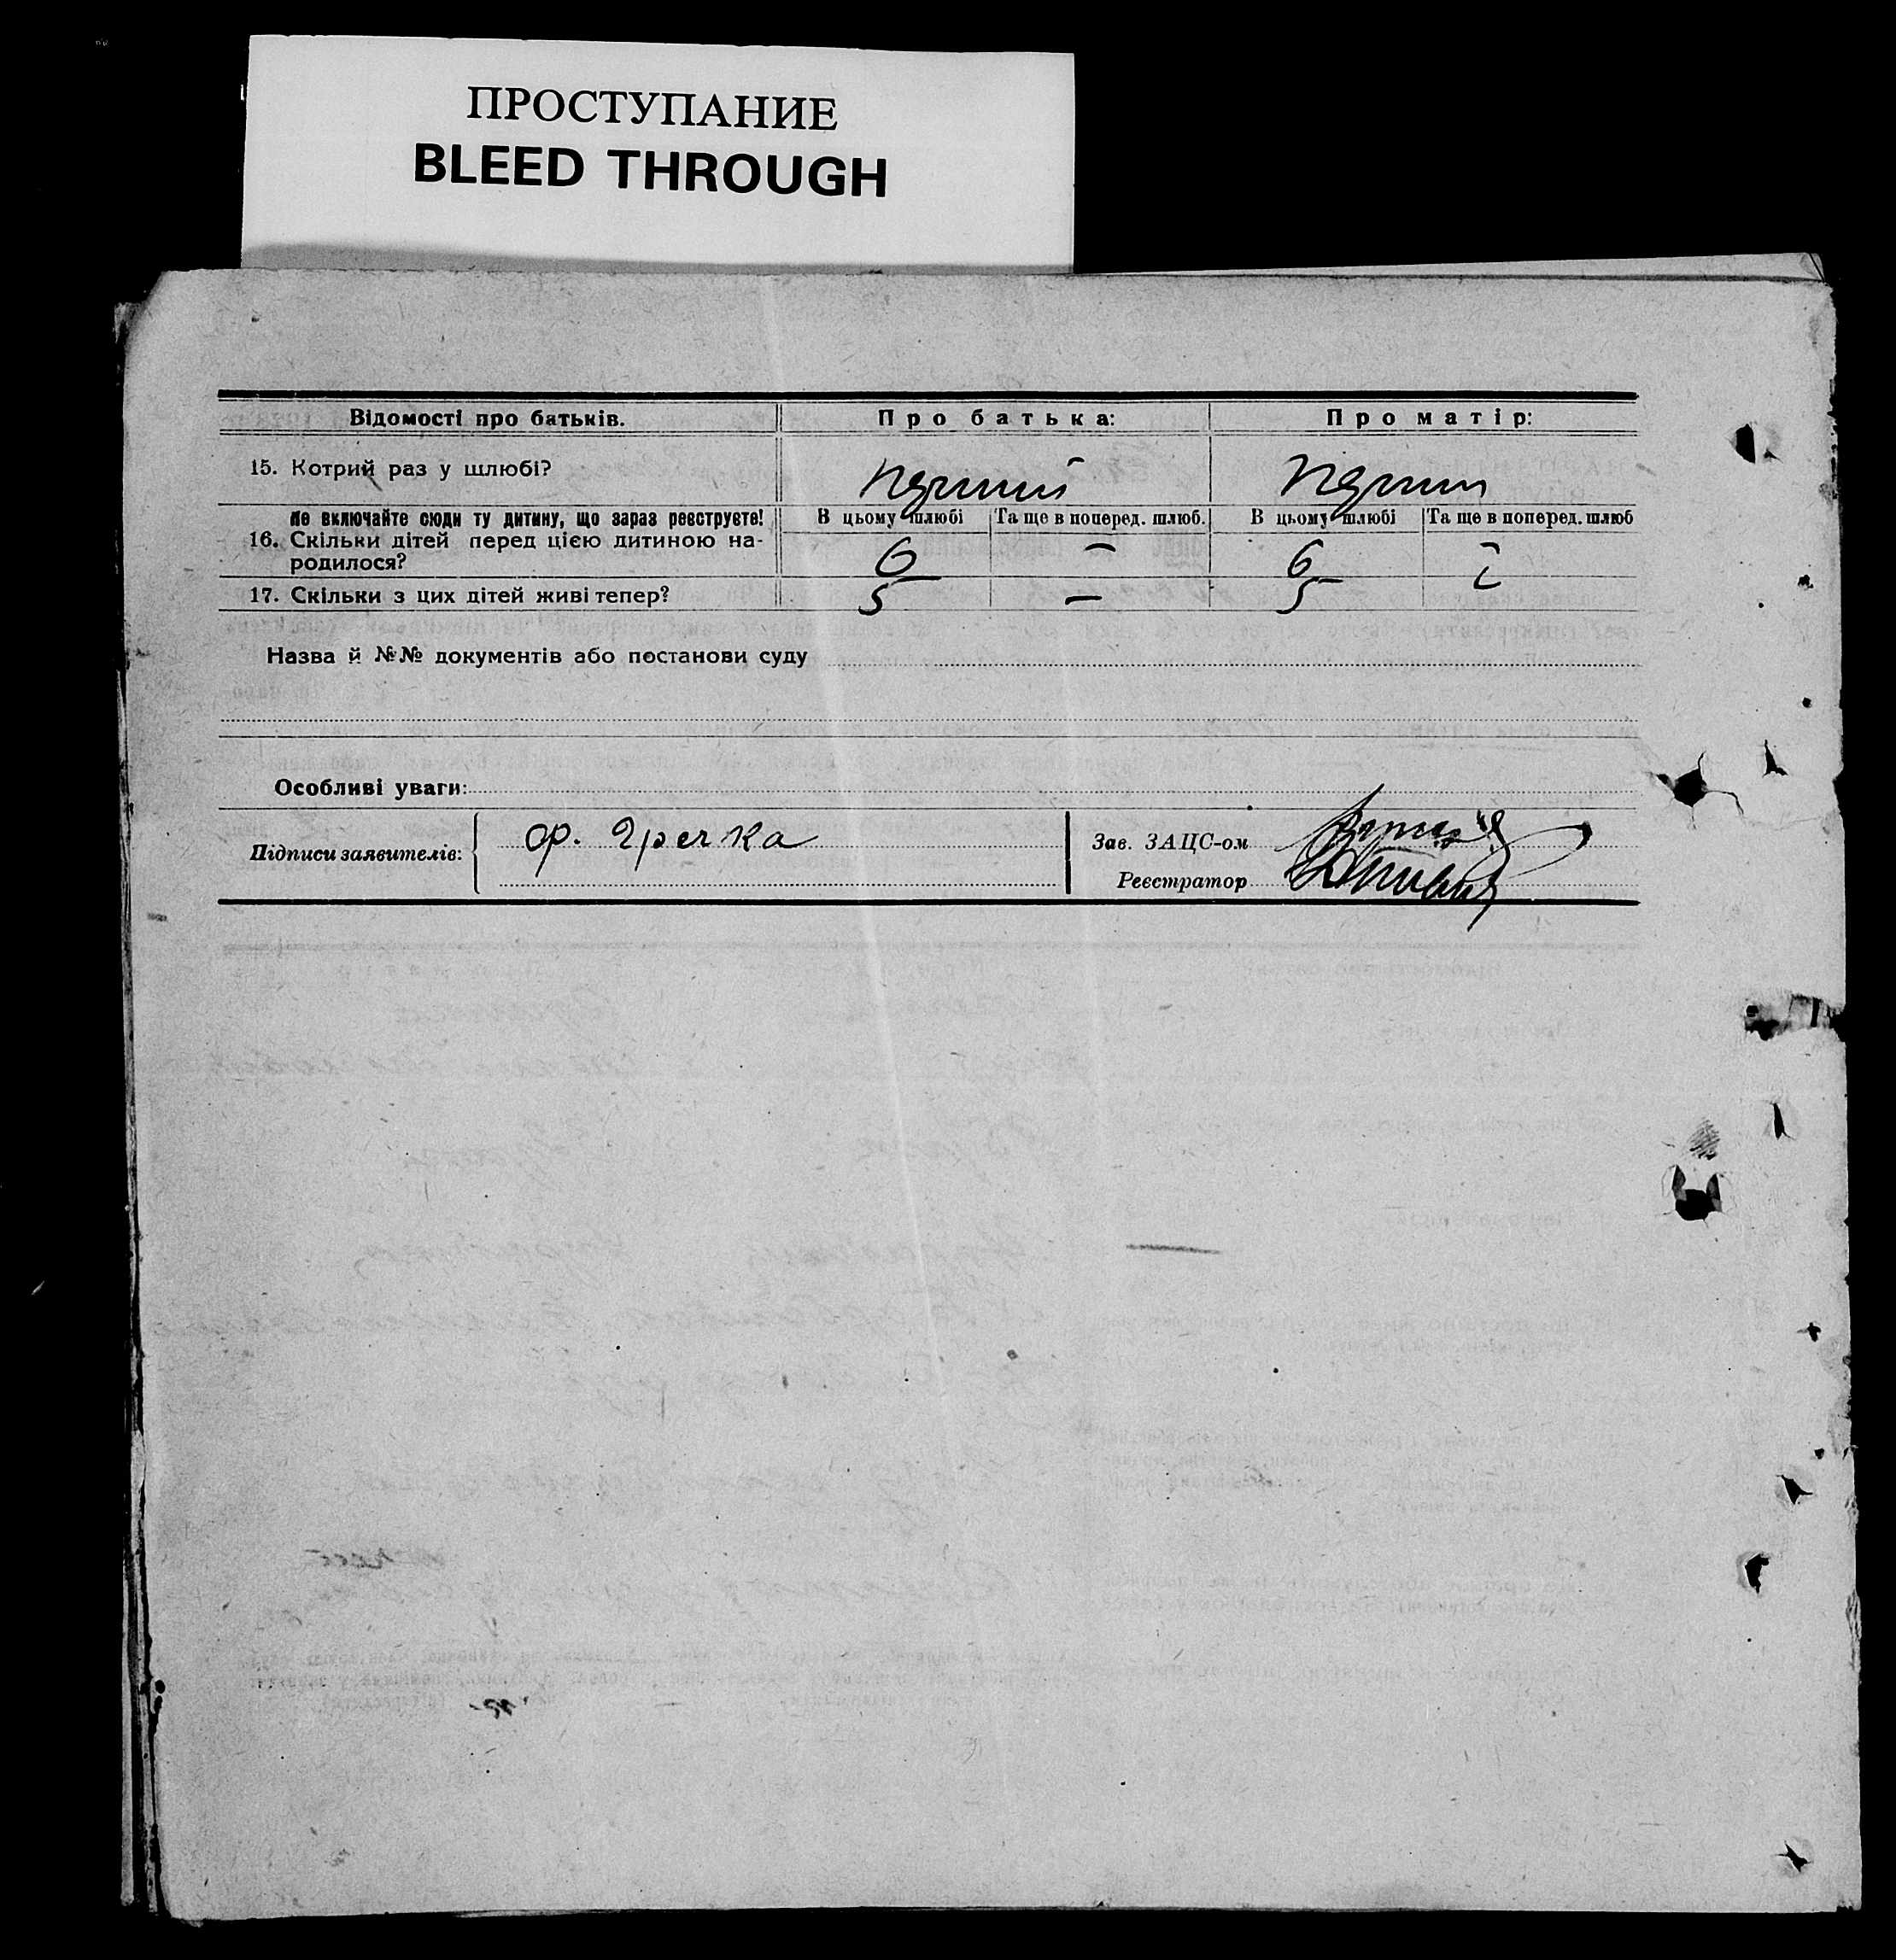 ПРОСТУПАНИЕ
BLEED THROUGH
Відомості про батьків. Про батька: Про матір:
15. Котрий раз у шлюбі? перший перший
Не включайте сюди ту дитину, що зараз реєструєте! В цьому шлюбі Та ще в поперед. шлюб. В цьому шлюбі Та ще в поперед. шлюб
16. Скільки дітей перед цією дитиною на-
родилося? 6 — 6 —
17. Скільки з цих дітей живі тепер? 5 — 5
Назва й №№ документів або постанови суду
Особливі уваги:
Підписи заявителів: Ф. Гречка
Зав. ЗАЦС-ом
Реєстратор